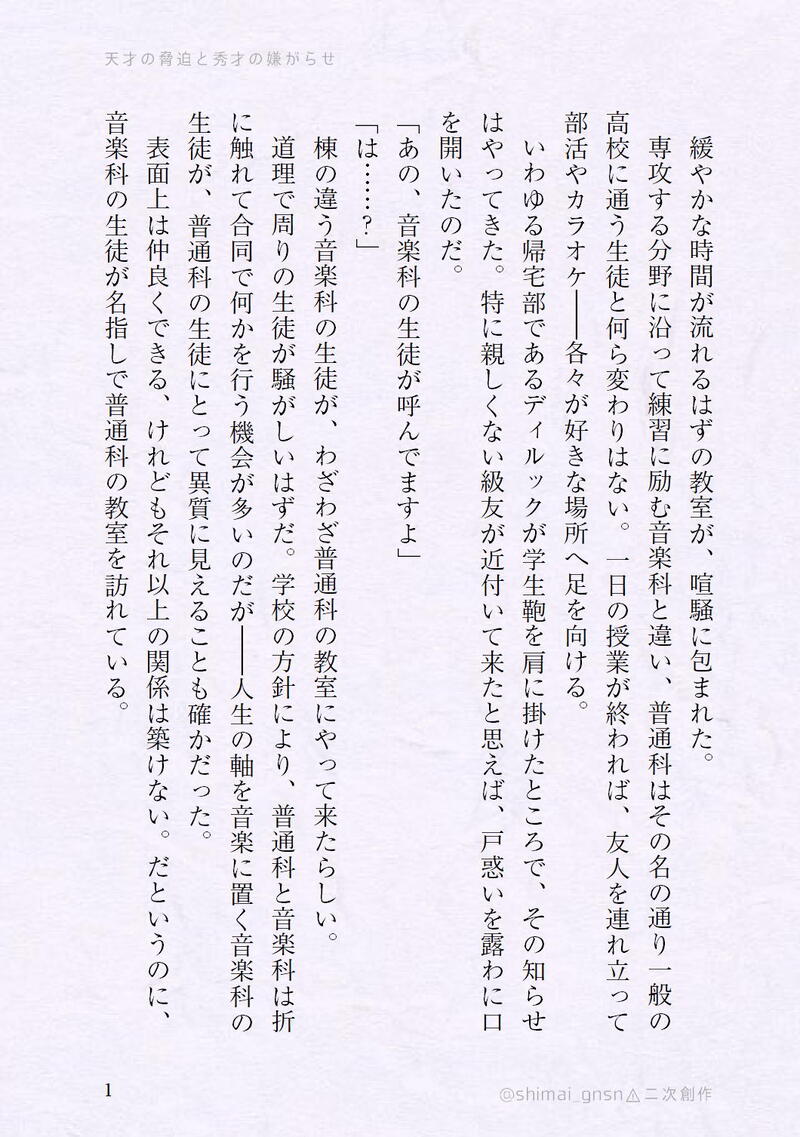 天才の脅迫と秀才の嫌がらせ
　緩やかな時間が流れるはずの教室が、喧騒に包まれた。
　専攻する分野に沿って練習に励む音楽科と違い、普通科はその名の通り一般の
高校に通う生徒と何ら変わりはない。一日の授業が終われば、友人を連れ立って
部活やカラオケ――各々が好きな場所へ足を向ける。
　いわゆる帰宅部であるディルックが学生鞄を肩に掛けたところで、その知らせ
はやってきた。特に親しくない級友が近付いて来たと思えば、戸惑いを露わに口
を開いたのだ。
「あの、音楽科の生徒が呼んでますよ」
「は……？」
　棟の違う音楽科の生徒が、わざわざ普通科の教室にやって来たらしい。
　道理で周りの生徒が騒がしいはずだ。学校の方針により、普通科と音楽科は折
に触れて合同で何かを行う機会が多いのだが――人生の軸を音楽に置く音楽科の
生徒が、普通科の生徒にとって異質に見えることも確かだった。
　表面上は仲良くできる、けれどもそれ以上の関係は築けない。だというのに、
音楽科の生徒が名指しで普通科の教室を訪れている。
1
@shimai_gnsn⚠二次創作